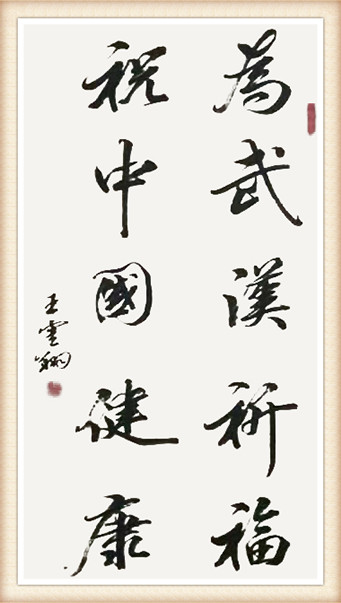 為武漢祈福
祝中國健康
王雲翔